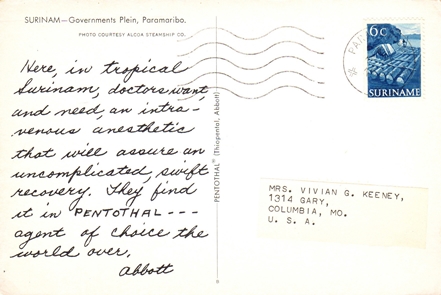 SURINAM—Governments Plein, Paramaribo.
PHOTO COURTESY ALCOA STEAMSHIP CO.
Here, in tropical
Surinam, doctors want,
and need, an intra-
venous anesthetic
that will assure an
uncomplicated, swift
recovery. They find
it in PENTOTHAL---
agent of choice the
world over.
Abbott
PENTOTHAL® (Thiopental, Abbott)
6c
SURINAME
MRS. VIVIAN G. KEENEY,
1314 GARY,
COLUMBIA, MO.
U. S. A.